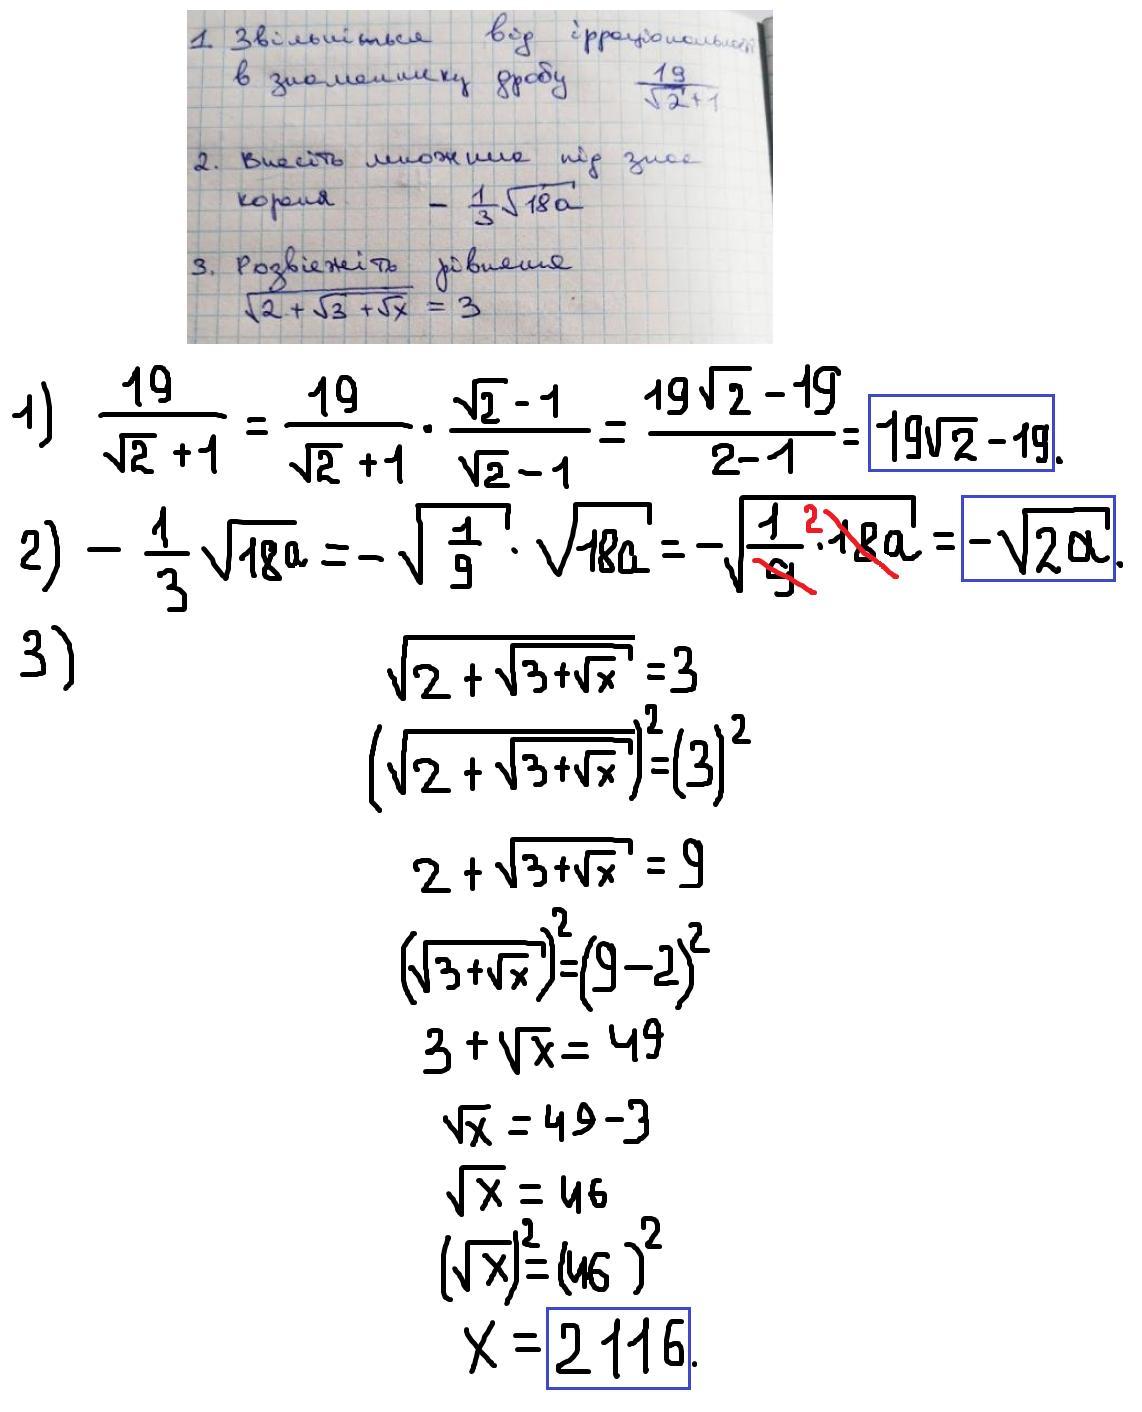 1. Звільніться від ірраціональності
в знаменнику дробу 19/(√2+1)
2. Внесіть множник під знак
кореня - 1/3 √18a
3. Розвяжіть рівняння
√(2 + √3 + √x) = 3
1) 19/(√2+1) = 19/(√2+1) · (√2-1)/(√2-1) = (19√2-19)/(2-1) = 19√2-19.
2) - 1/3 √18a = -√(1/9) · √18a = -√(1/9 · 18a) 2 = -√2a.
3) √(2+√(3+√x)) = 3
(√(2+√(3+√x)))² = (3)²
2+√(3+√x) = 9
(√(3+√x))² = (9-2)²
3+√x = 49
√x = 49-3
√x = 46
(√x)² = (46)²
x = 2116.